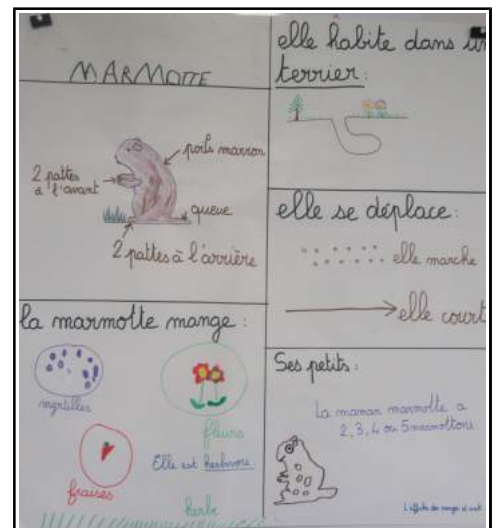 MARMOTTE
poils marron
2 pattes
à l'avant
queue
2 pattes à l'arrière
la marmotte mange :
myrtilles
fleurs
Elle est herbivore.
fraises
herbe
elle habite dans un
terrier :
elle se déplace :
elle marche
elle court
Ses petits :
La maman marmotte a
2, 3, 4 ou 5 marmottons.